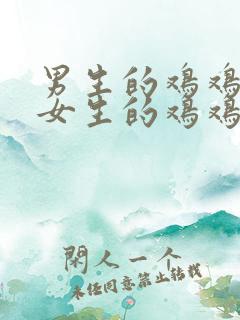 男生的鸡鸡
女生的鸡鸡
閑人一个
未经同意禁止转载